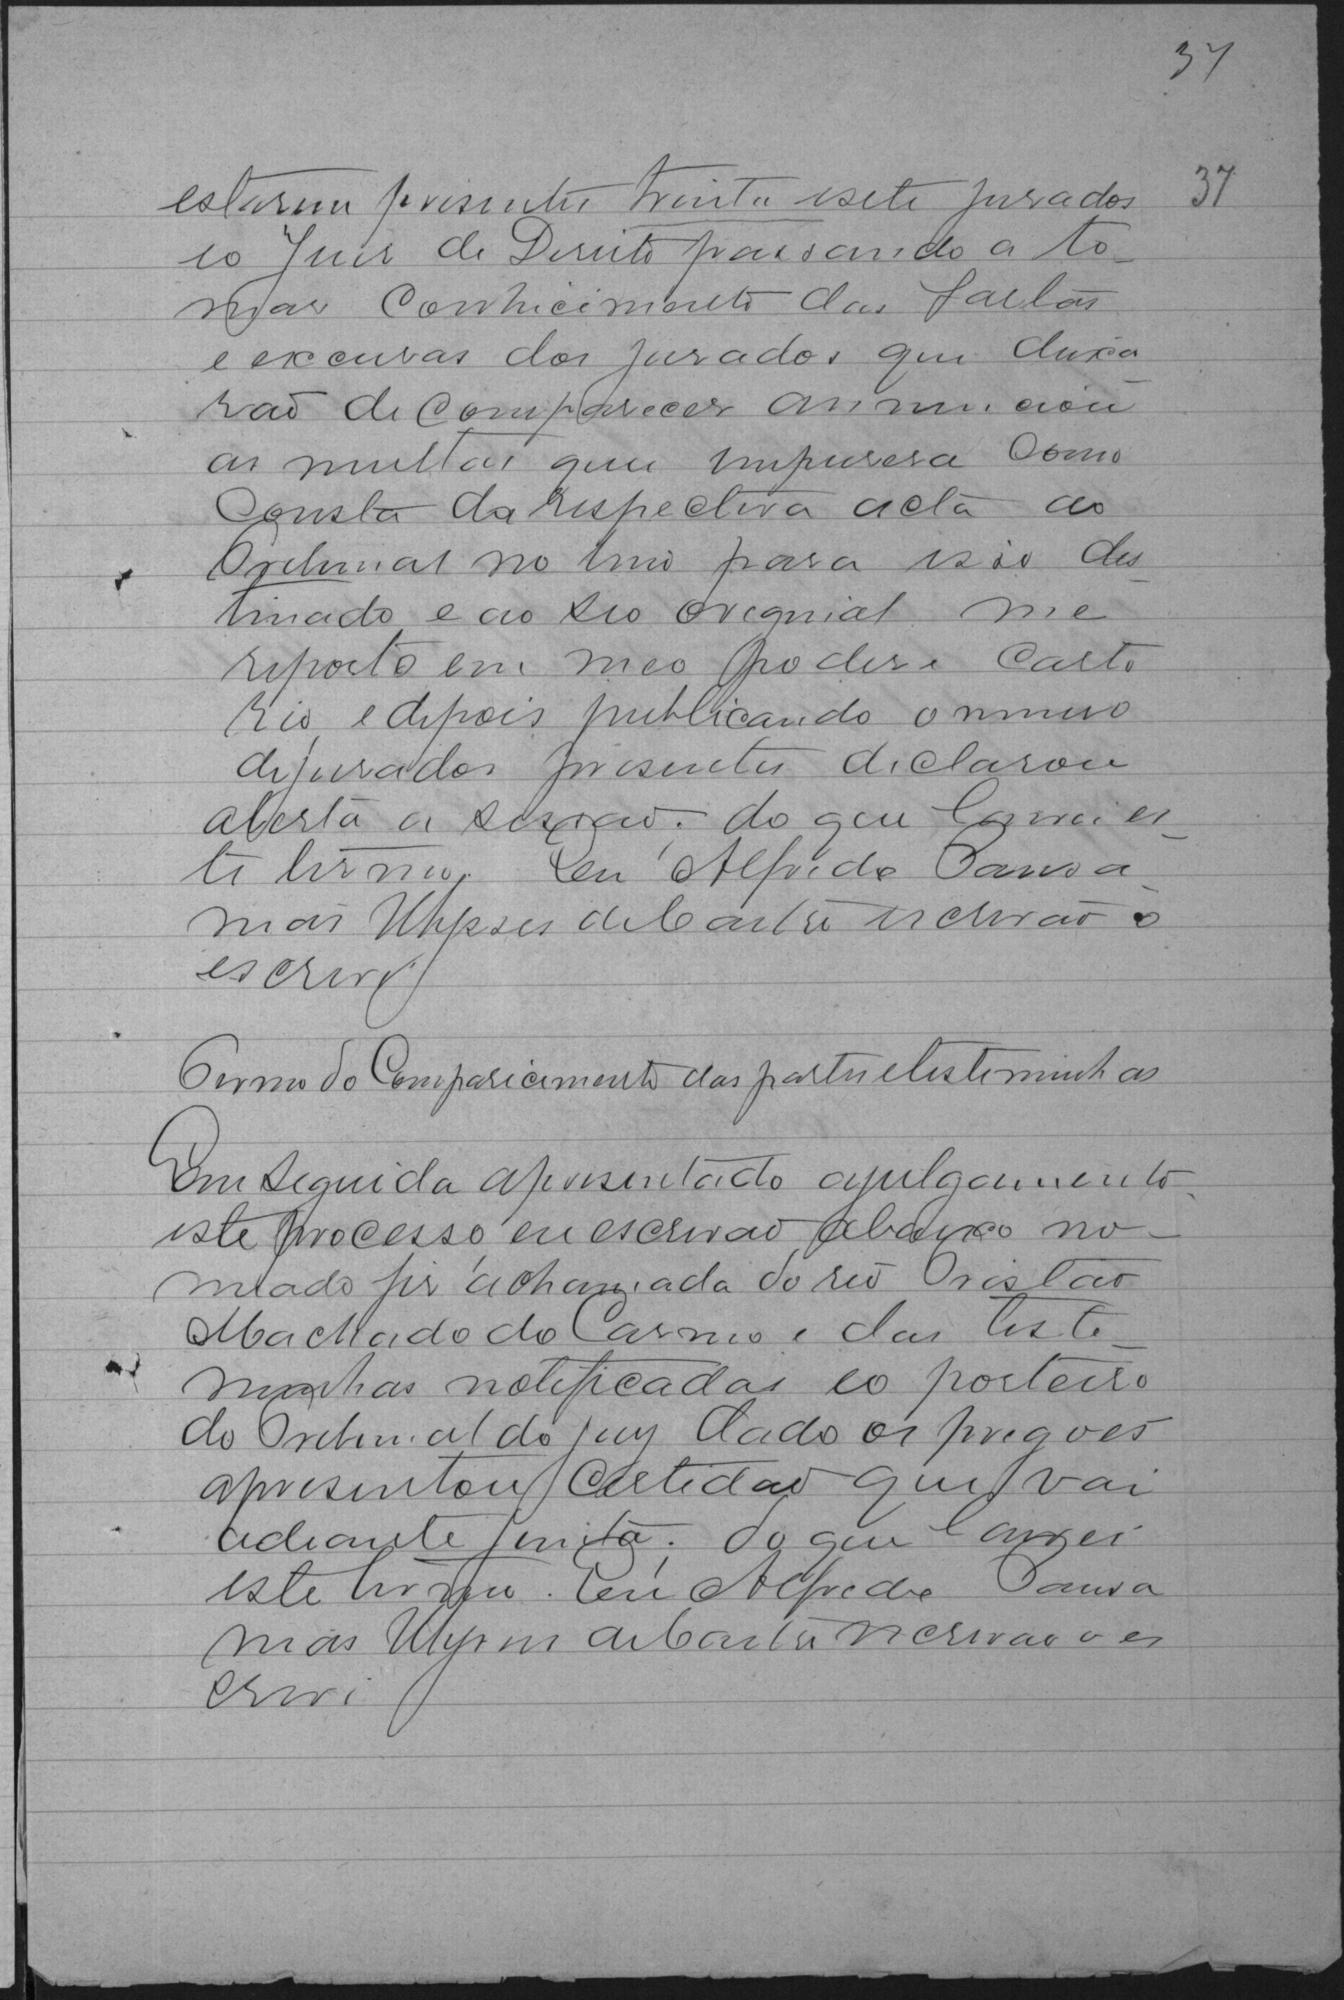 37
37
estarem presentes trinta e sete jurados
e o Juis de Dereito passando a to-
mar conhicimento das faltas
e excusas dos jurados que deixa
raõ de comparecer annunciou
as multas que impusera como
Consta da respectiva acta do
Tribunal no livro para isso des-
tinado e ao seo oreginal me
reporto em meo poder e carto
rio, e depois publicando o numero
de jurados presentes declarou
aberta a sessaõ; do que lavrei es-
te termo. Eu Alfredo
mas Ulysses de Castro escrivaõ o
escrevi
Termo do Comparicimento das partes e testiminhas
Em seguida apresentado a julgamento
este processo, eu escrivaõ abaixo no-
miado fis a chamada do reo Tristaõ
Machado do Carmo e das teste-
munhas notificadas e o porteiro
do Tribunal do jury dado os pregoes
apresentou Certidaõ que vai
adiante junta; do que lavrei
este termo. Eu Alfredo
mas Ulysses de Castro escrivaõ o es
crevi